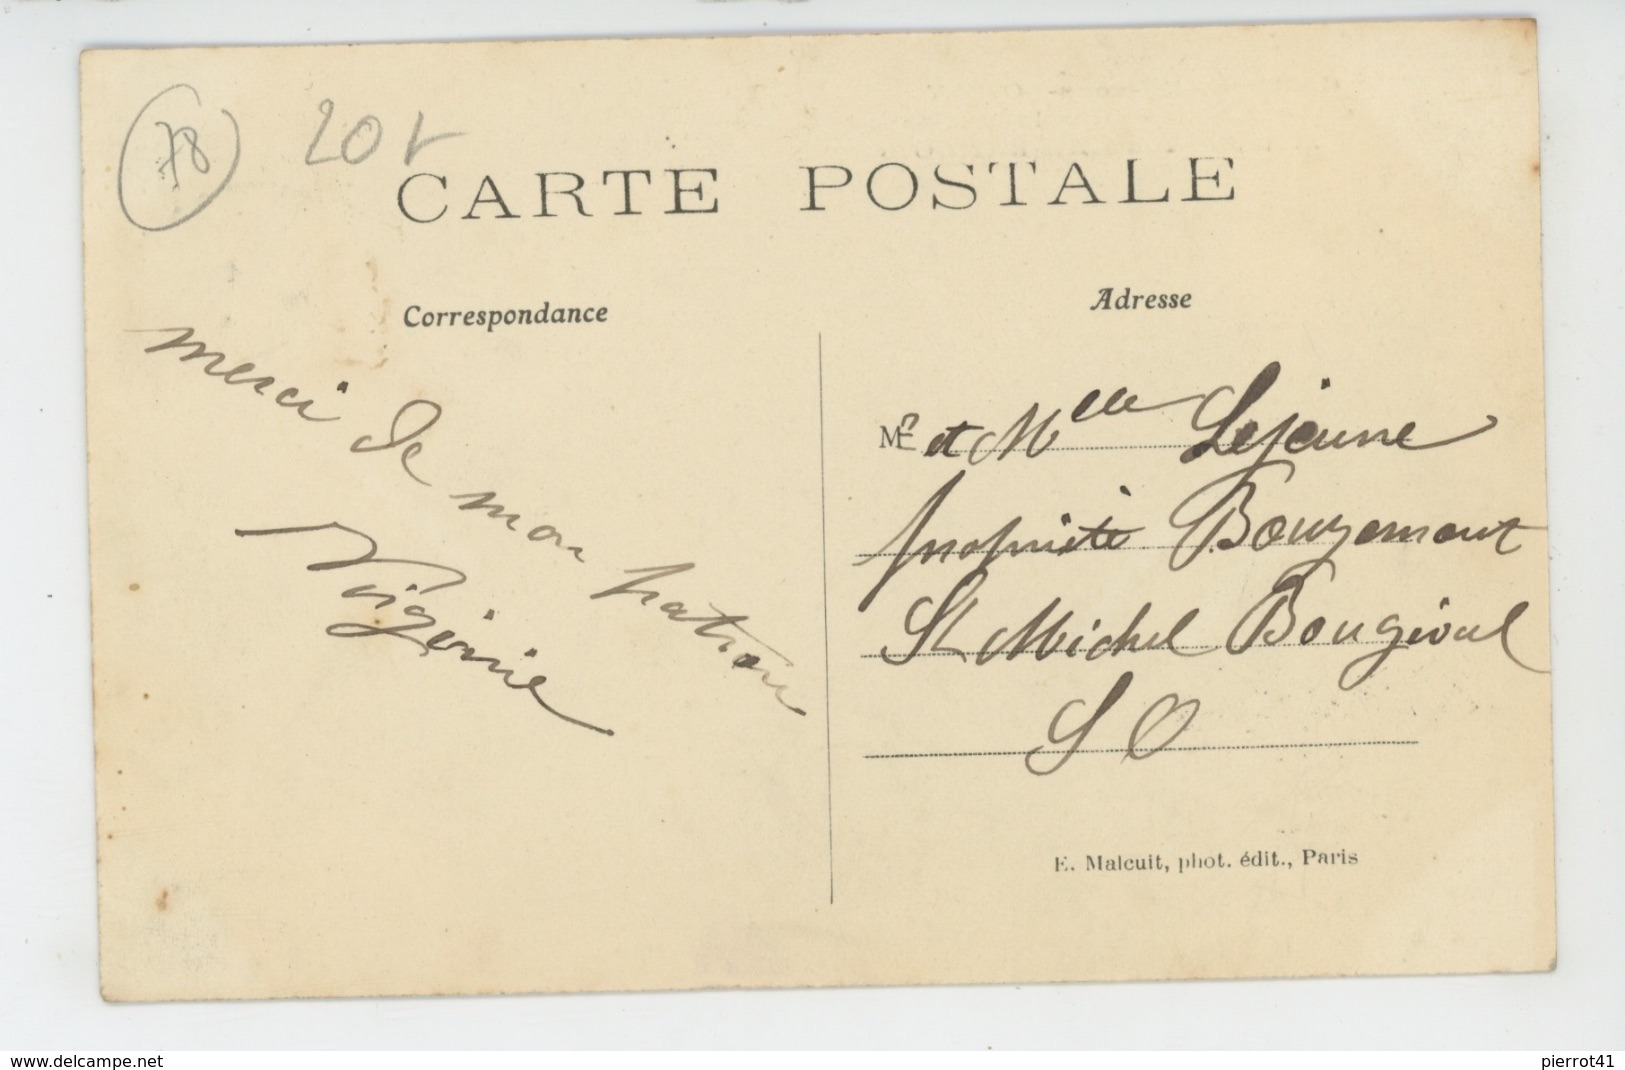 78
20
CARTE POSTALE
Correspondance
Adresse
merci de mon patron
Virginie
Mr et Melle Lejeune
propriété Bouzemont
St Michel Bougival
S O
E. Malcuit, phot. édit., Paris
www.delcampe.net
pierrot41